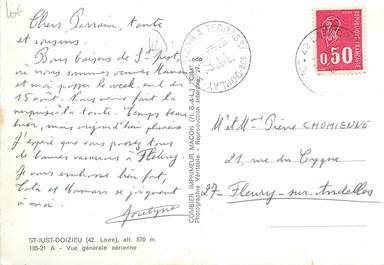 Chers Parrain, tante
et cousins.
Bons baisers de St Just,
où nous sommes venues Maman
et moi passer le week-end du
15 août. Nous avons fait la
surprise à la tante. Temps beau
hier, mais aujourd'hui pluvieux.
J'espère que vous passez tous
de bonnes vacances à Fleury.
Je vous embrasse bien fort,
Tata et Maman se joignent
à moi.
Jocelyne
ST-JUST-DOIZIEU (42. Loire), alt. 570 m.
185-21 A - Vue générale aérienne
COMBIER IMPRIMEUR MACON (71. S-&-L) "CIM"
Photographie Véritable - Reproduction Interdite
POSTES
0,50
M et Mme Pierre CHOMIENNE
21, rue du Cygne
27- Fleury-sur-Andelles